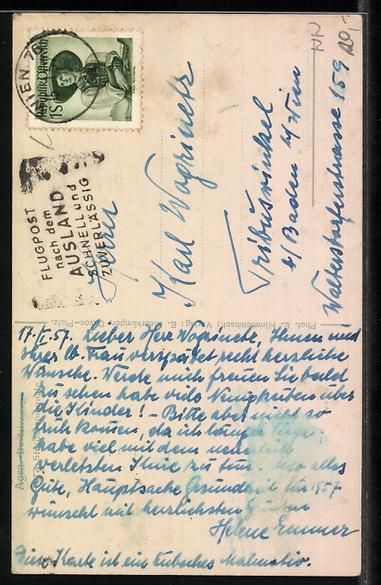 WIEN
Republik Österreich
1S
FLUGPOST
nach dem
AUSLAND
SCHNELL und
ZUVERLÄSSIG
Herrn
Karl Wogrinetz
Tribuswinkel
b/Baden b/Wien
159
Phot. E. Himmelsbach, Verlag: E. Meerkämper, Davos-Platz.
17/I.57. Lieber Herr Wogrinetz, Ihnen und
Ihrer lb. Frau verspätet recht herzliche
Wünsche. Werde mich freuen Sie bald
zu sehen habe viele Neuigkeiten über
die Kinder! – Bitte aber nicht so
früh kommen, da ich länger liege,
habe viel mit dem neuerlich
verletzten Knie zu tun. Also alles
Gute, Hauptsache Gesundheit für 1957
wünscht mit herzlichsten Grüßen
Helene
Diese Karte ist ein hübsches Malmotiv.